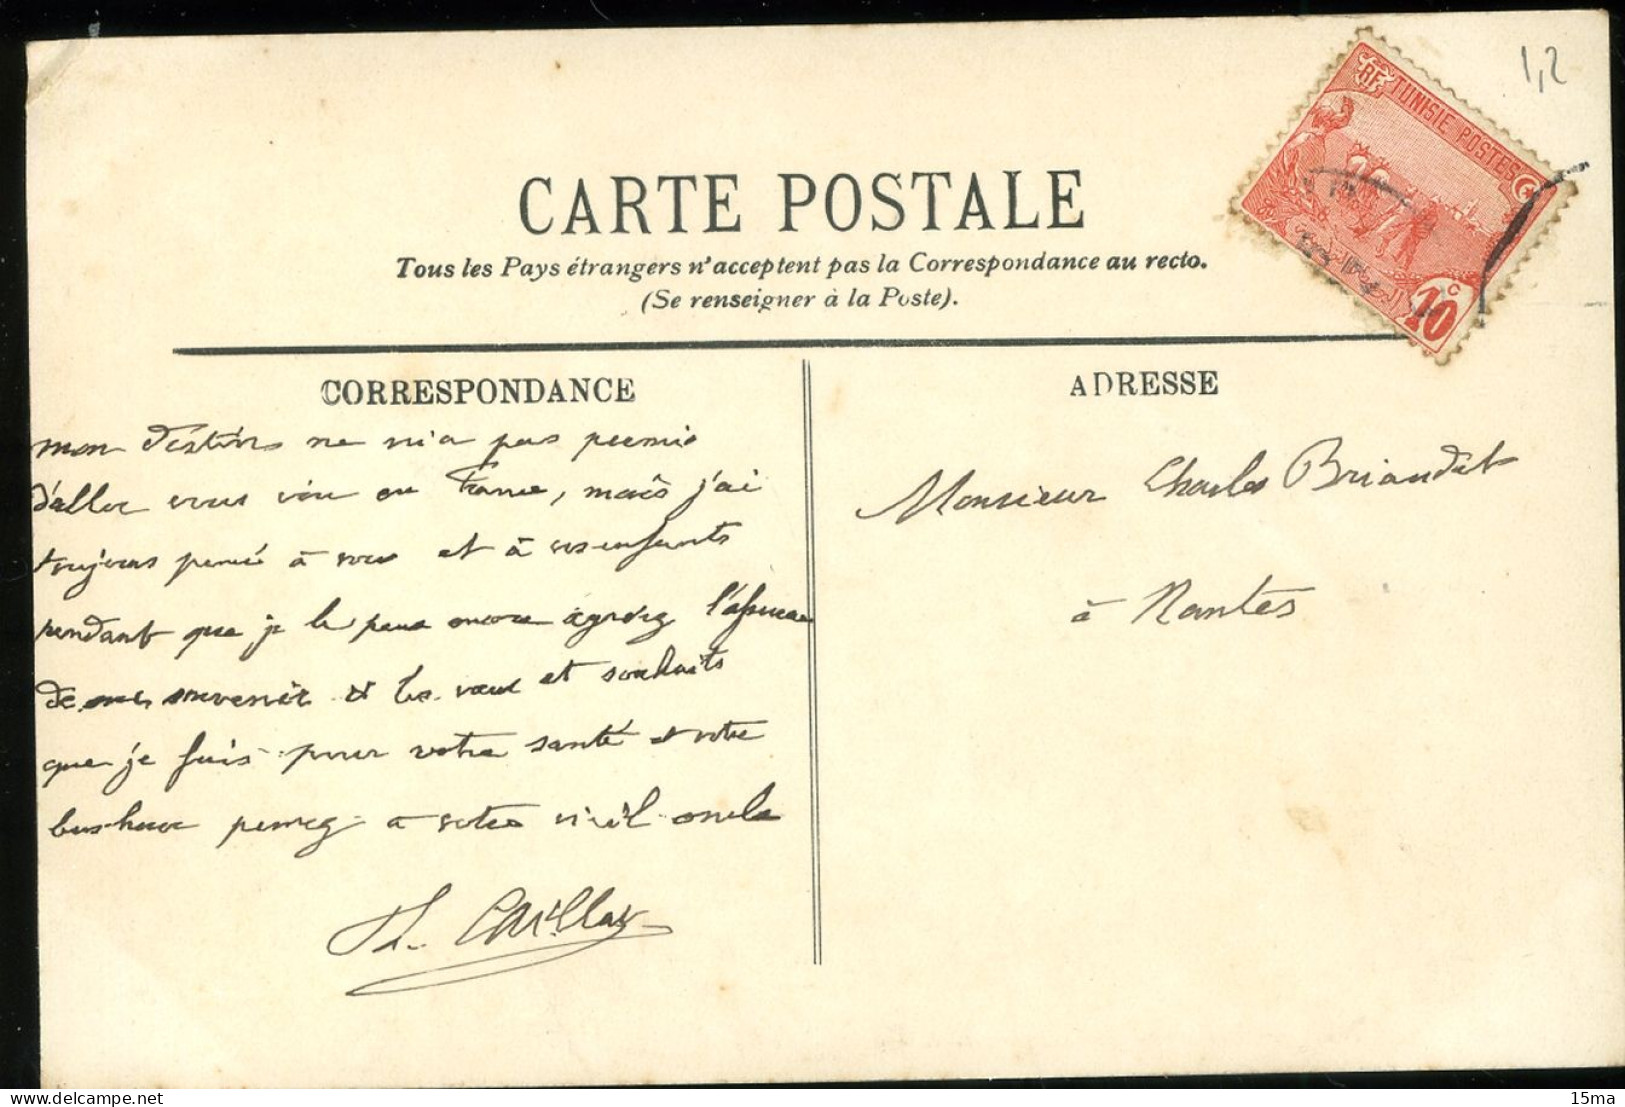 1,2
RF TUNISIE POSTES
10 C
CARTE POSTALE
Tous les Pays étrangers n'acceptent pas la Correspondance au recto.
(Se renseigner à la Poste).
CORRESPONDANCE
ADRESSE
mon ne m'a pas permis
d'aller vous voir en France, mais j'ai
toujours pensé à vous et à vos enfants
pendant que je le peux encore agréez
de mes souvenir et les vœux et souhaits
que je fais pour votre santé et votre
bonheur pensez à votre vieil oncle
Caillaux
Monsieur Charles Briandet
à Nantes
15ma